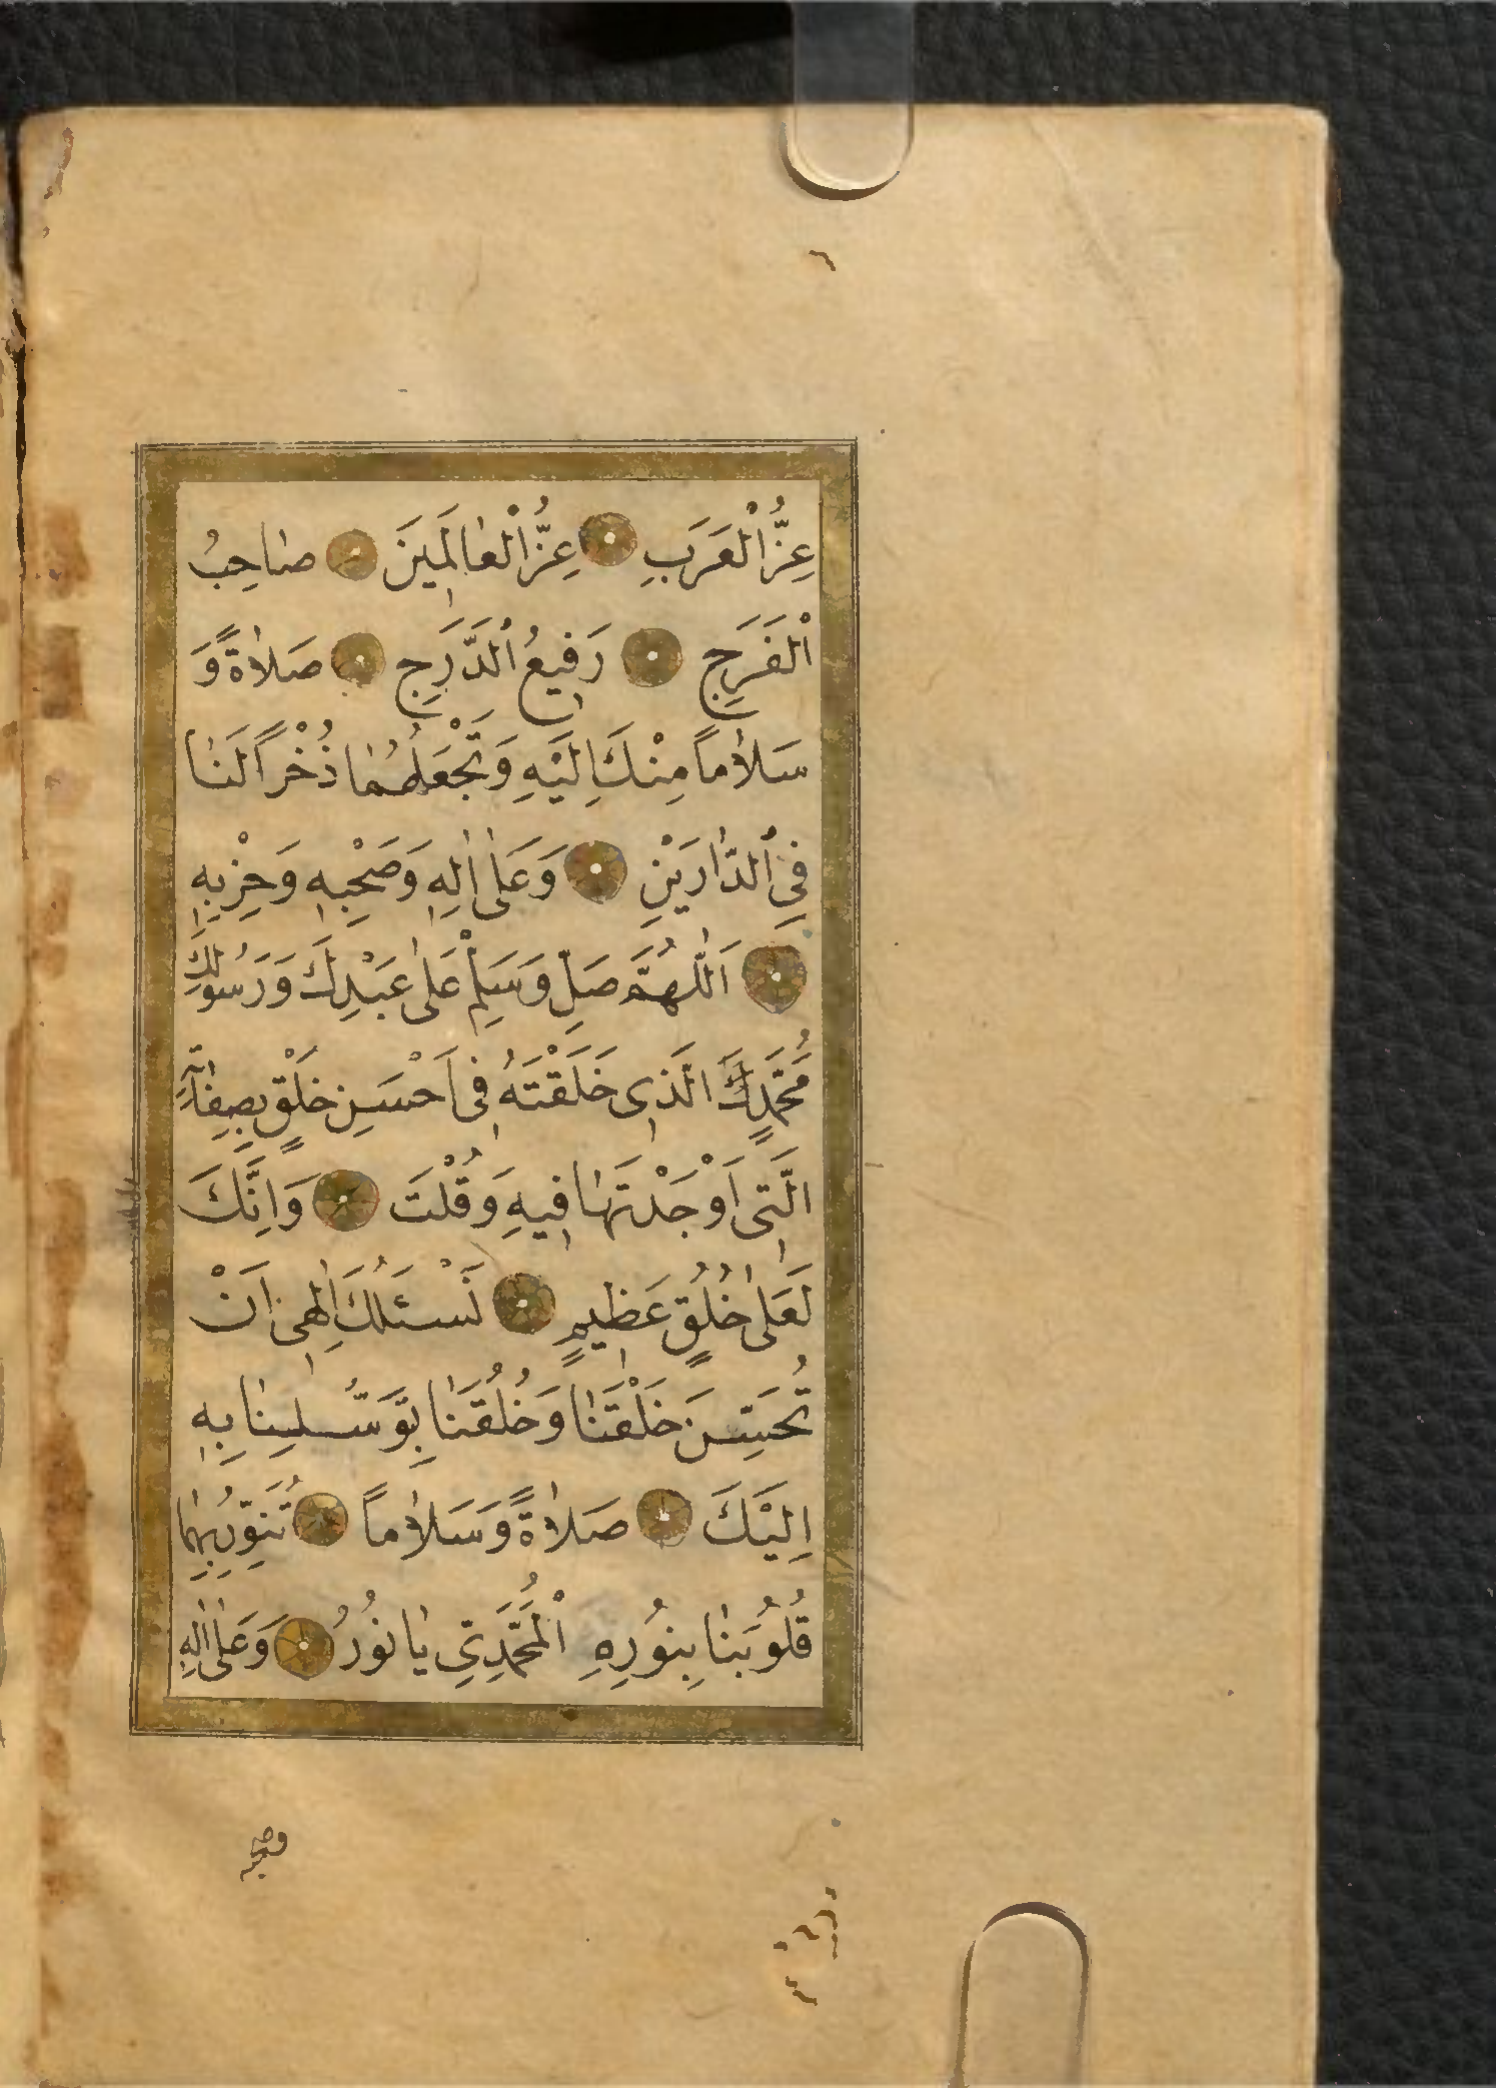 ٦
عِزُّ الْعَرَبِ عِزُّ الْعَالَمِينَ صَاحِبُ
الْفَرَجِ رَفِيعُ الدَّرَجِ صَلَاةً وَ
سَلَامًا مِنْكَ اِلَيْهِ وَتَجْعَلُهُمَا ذُخْرًا لَنَا
فِي الدَّارَيْنِ وَعَلٰى اٰلِهِ وَصَحْبِهِ وَحِزْبِهِ
اَللّٰهُمَّ صَلِّ وَسَلِّمْ عَلٰى عَبْدِكَ وَرَسُولِكَ
مُحَمَّدٍ الَّذِى خَلَقْتَهُ فِى اَحْسَنِ خَلْقٍ
الَّتِى اَوْجَدْتَهَا فِيهِ وَقُلْتَ وَاِنَّكَ
لَعَلٰى خُلُقٍ عَظِيمٍ نَسْئَلُكَ اِلٰهِى اَنْ
تُحَسِّنَ خَلْقَنَا وَخُلُقَنَا بِتَوَسُّلِنَا بِهِ
اِلَيْكَ صَلَاةً وَسَلَامًا تُنَوِّرُ بِهِمَا
قُلُوبَنَا بِنُورِهِ الْمُحَمَّدِيِّ يَا نُورُ وَعَلٰى اٰلِهِ
وصحبه